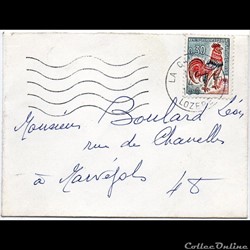 0,30
LA C
LOZERE
Monsieur Boulard Léon
rue de Chanelles
à Marvejols 48
CollecOnline